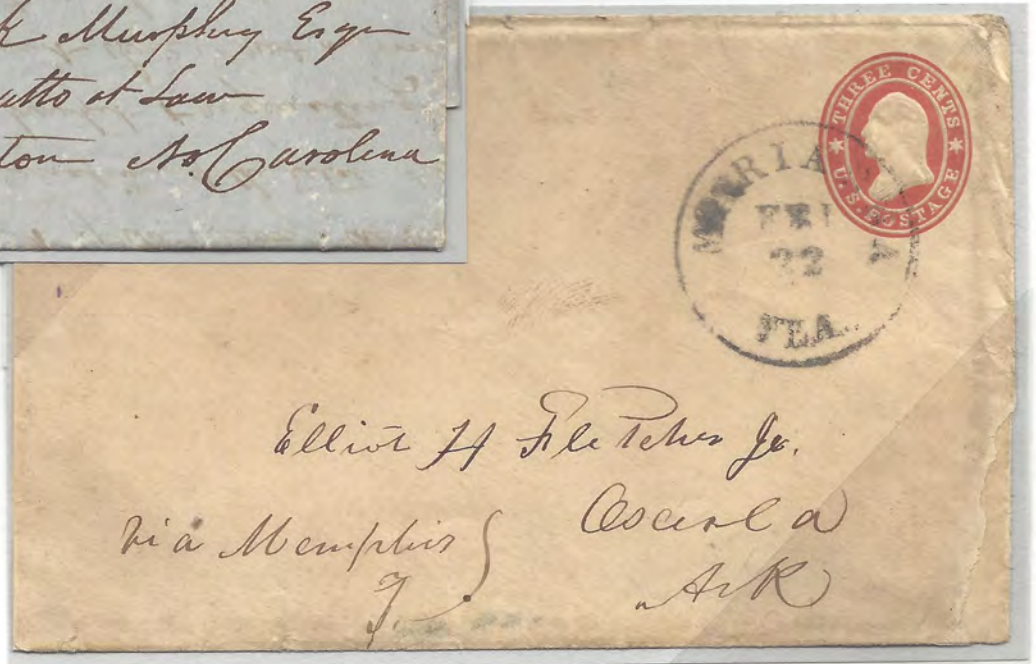 k Murphy Esqr
atto at Law
ton No. Carolina
THREE CENTS
U.S. POSTAGE
FEB
22
FLA.
Elliot H Fletcher Jr.
Osceola
via Memphis
T.
Ark